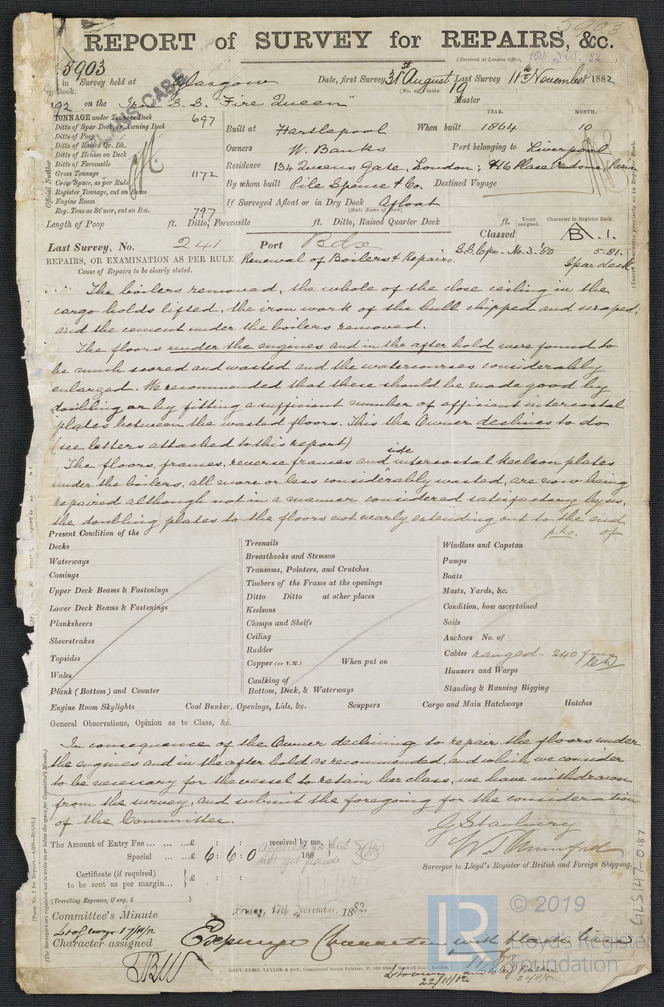 REPORT of SURVEY for REPAIRS, &c.
5903
5903
(Received at London Office,
in Survey held at Glasgow Date, first Survey 31st August Last Survey 11th November 1882
Book. (No. of Visits 19
92 on the Iron S.S. "Fire Queen" Master
TONNAGE under Tonnage Deck 697
Ditto of Spar Deck, or Awning Deck
Ditto of Poop
Ditto of Raised Qr. Dk.
Ditto of Houses on Deck
Ditto of Forecastle
Gross Tonnage 1172
Crew Space, as per Rule
Register Tonnage, cut on Beam
Engine Room
Reg. Tons as St'mer, cut on Bm. 797
YEAR. MONTH.
Built at Hartlepool When built 1864 10
Owners W. Banks Port belonging to Liverpool
Residence 134 Queens Gate, London; & 16 Place Vendome, Paris
By whom built Pile Spence & Co. Destined Voyage
If Surveyed Afloat or in Dry Dock Afloat
(State Name of Dock)
Length of Poop ft. Ditto, Forecastle ft. Ditto, Raised Quarter Deck ft.
Years assigned. Character in Register Book.
Last Survey, No. 241 Port Bdx Classed A.1.
S.S. No. 3. '80 5-81.
Spar deck
REPAIRS, OR EXAMINATION AS PER RULE Renewal of Boilers & Repairs.
Cause of Repairs to be clearly stated.
The boilers removed, the whole of the close ceiling in the
cargo holds lifted, the iron work of the hull chipped and scraped;
and the cement under the boilers removed.
The floors under the engines and in the after hold were found to
be much scored and wasted and the watercourses considerably
enlarged. We recommended that these should be made good by
doubling or by fitting a sufficient number of efficient intercostal
plates between the wasted floors. This the Owner declines to do
(see letters attached to this report)
The floors, frames, reverse frames and side intercostal keelson plates
under the boilers, all more or less considerably wasted, are now being
repaired although not in a manner considered satisfactory by us,
the doubling plates to the floors not nearly extending out to the end of
Present Condition of the
Decks
Waterways
Comings
Upper Deck Beams & Fastenings
Lower Deck Beams & Fastenings
Planksheers
Sheerstrakes
Topsides
Wales
Plank (Bottom) and Counter
Treenails
Breasthooks and Stemson
Transoms, Pointers, and Crutches
Timbers of the Frame at the openings
Ditto Ditto at other places
Keelsons
Clamps and Shelfs
Ceiling
Rudder
Copper (or Y.M.) When put on
Caulking of
Bottom, Deck, & Waterways
Windlass and Capstan
Pumps
Boats
Masts, Yards, &c.
Condition, how ascertained
Sails
Anchors No. of
Cables ranged - 240 fms
Hawsers and Warps
Standing & Running Rigging
Engine Room Skylights Coal Bunker, Openings, Lids, &c. Scuppers Cargo and Main Hatchways Hatches
General Observations, Opinion as to Class, &c.
In consequence of the Owner declining to repair the floors under
the engines and in the after hold as recommended, and which we consider
to be necessary for the vessel to retain her class, we have withdrawn
from the survey, and submit the foregoing for the consideration
of the Committee.
G. Stanbury
W. T. Mumford
Surveyor to Lloyd's Register of British and Foreign Shipping.
The Amount of Entry Fee ... £ : : received by me,
Special ... £ 6 : 6 : 0 188
Certificate (if required)
to be sent as per margin... } £ : :
(Travelling Expenses, if any, £ )
Committee's Minute Friday, 17th November, 1882.
Character assigned Expunge Character with black line
22/11/82
GLS147-0187
© 2019
LR
Lloyd's Register
Foundation